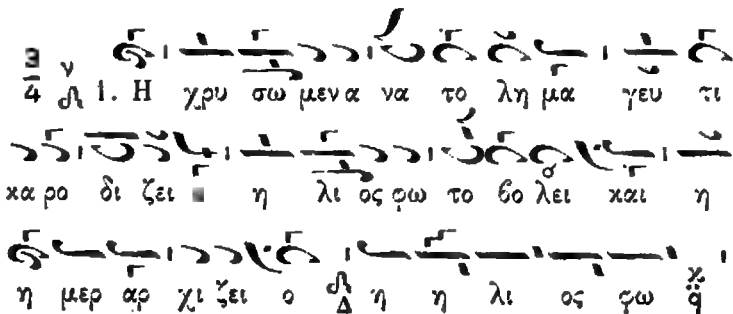 3/4 ν 1. Η χρυ σω μεν α να το λη μα γευ τι
κα ρο δι ζει η λι ος φω το βο λει και η
η μερ αρ χι ζει ο Δ η η λι ος φω χ q